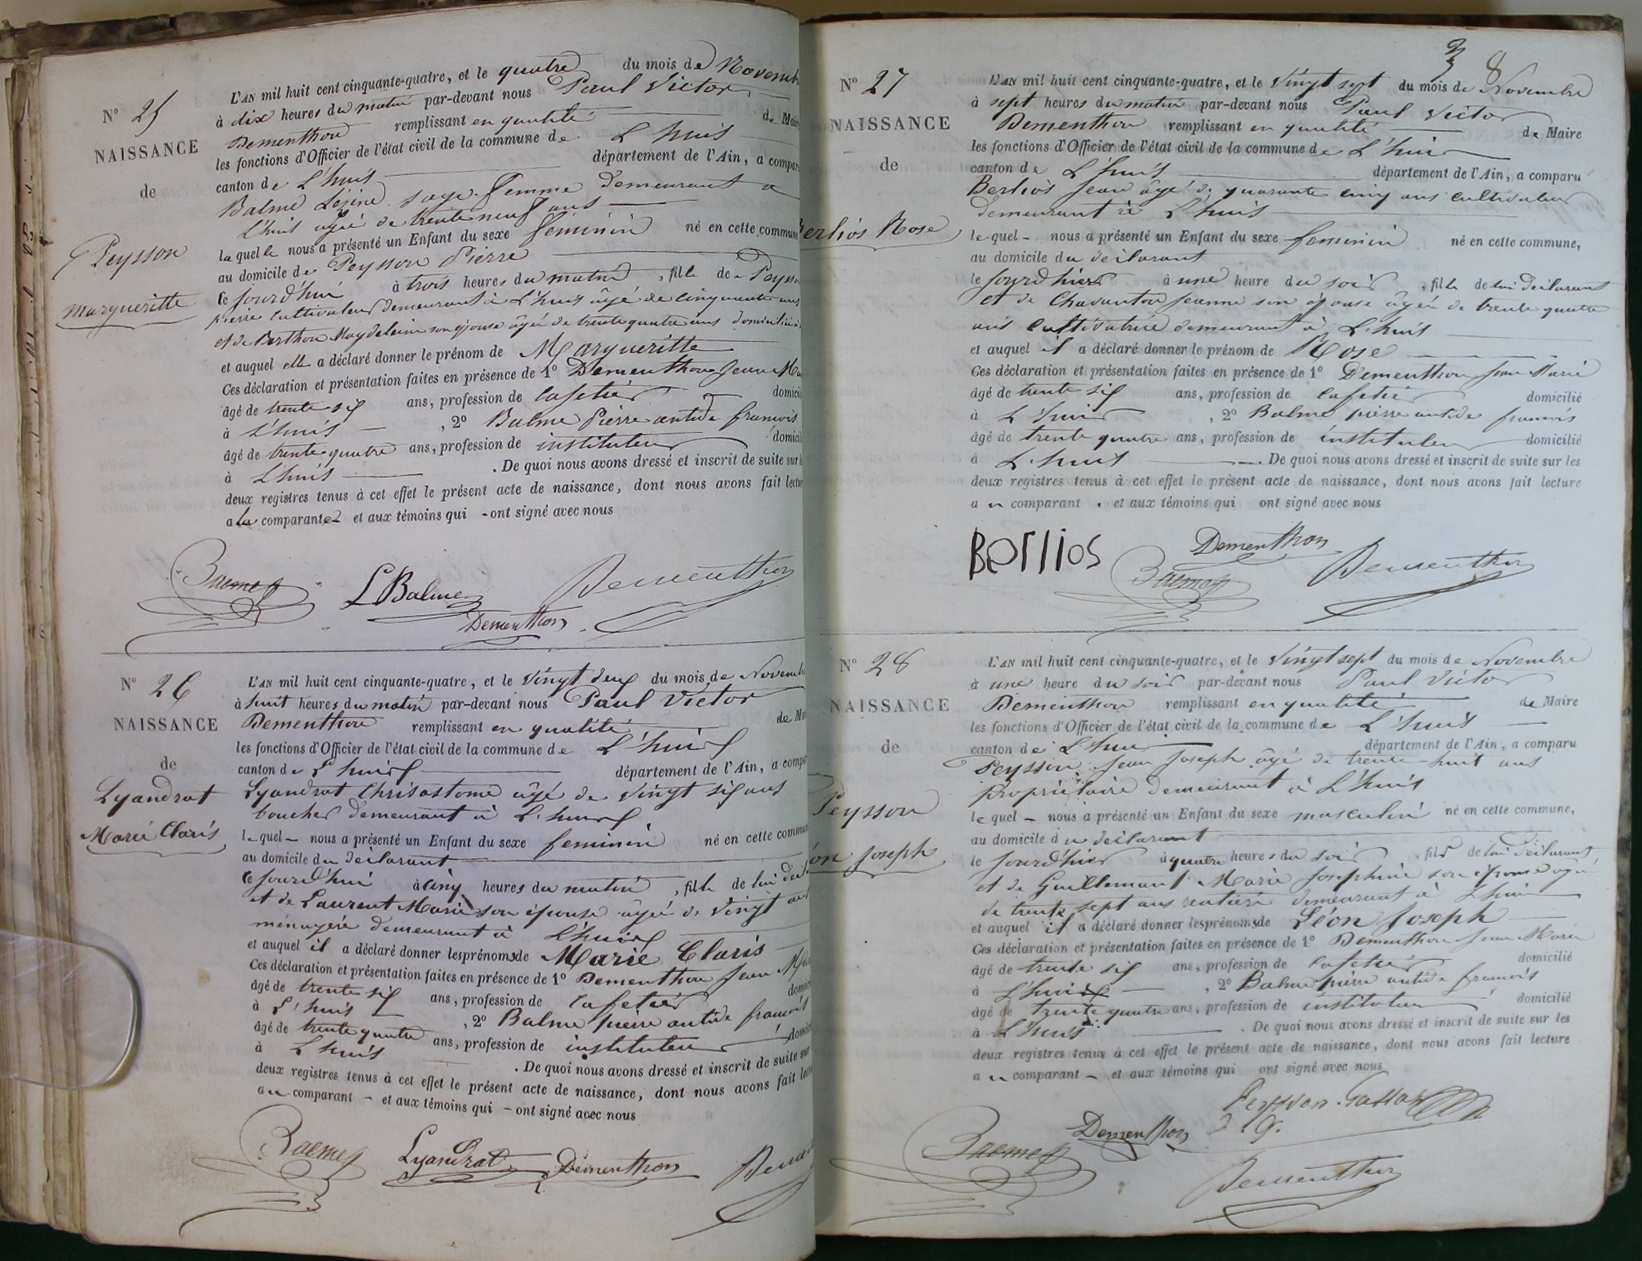 N° 25
NAISSANCE
de
Peysson
Margueritte
L'AN mil huit cent cinquante-quatre, et le quatre du mois de Novemb
à dix heures du matin par-devant nous Paul Victor
Dementhon remplissant en qualité de Mai
les fonctions d'Officier de l'état civil de la commune de L'huis
canton de L'huis département de l'Ain, a compar
Balme sage femme demeurant a
L'huis agée de trente neuf ans
laquelle nous a présenté un Enfant du sexe feminin né en cette commun
au domicile de Peysson Pierre
le jourd'hui à trois heures du matin, fille de Peyss
Pierre cultivateur demeurant à L'huis âgé de cinquante ans
et de Berthon Magdeleine son épouse âgée de trente quatre ans domiciliée
et auquel elle a déclaré donner le prénom de Margueritte
Ces déclaration et présentation faites en présence de 1° Dementhon Jean Ma
âgé de trente six ans, profession de cafetier domicil
à L'huis, 2° Balme Pierre antide francois
âgé de trente quatre ans, profession de instituteur domicil
à L'huis. De quoi nous avons dressé et inscrit de suite sur l
deux registres tenus à cet effet le présent acte de naissance, dont nous avons fait lectur
a la comparante et aux témoins qui - ont signé avec nous
L Balme
Dementhon
Dementhon
N° 26
NAISSANCE
de
Lyandrat
Marie Claris
L'AN mil huit cent cinquante-quatre, et le vingt deux du mois de Novemb
à huit heures du matin par-devant nous Paul Victor
Dementhon remplissant en qualité de Mai
les fonctions d'Officier de l'état civil de la commune de L'huis
canton de L'huis département de l'Ain, a compar
Lyandrat Chrisostome âgé de vingt six ans
boucher demeurant à L'huis
lequel - nous a présenté un Enfant du sexe feminin né en cette commun
au domicile du déclarant
le jourd'hui à cinq heures du matin, fille de lui
et de Laurent Marie son épouse âgée de vingt
ménagère demeurant à L'huis
et auquel il a déclaré donner les prénoms de Marie Claris
Ces déclaration et présentation faites en présence de 1° Dementhon Jean Ma
âgé de trente six ans, profession de cafetier domici
à L'huis, 2° Balme pierre antide francois
âgé de trente quatre ans, profession de instituteur domici
à L'huis. De quoi nous avons dressé et inscrit de suite sur
deux registres tenus à cet effet le présent acte de naissance, dont nous avons fait lec
au comparant - et aux témoins qui - ont signé avec nous
Lyandrat Dementhon
38
N° 27
NAISSANCE
de
Berlios Rose
L'AN mil huit cent cinquante-quatre, et le vingt sept du mois de Novembre
à sept heures du matin par-devant nous Paul Victor
Dementhon remplissant en qualité de Maire
les fonctions d'Officier de l'état civil de la commune de L'huis
canton de L'huis département de l'Ain, a comparu
Berlios Jean âgé de quarante cinq ans cultivateur
demeurant à L'huis
lequel - nous a présenté un Enfant du sexe feminin né en cette commune,
au domicile du déclarant
le jourd'hier à une heure du soir, fille de lui déclarant
et de Chavanton Jeanne son épouse âgée de trente quatre
ans cultivatrice demeurant à L'huis
et auquel il a déclaré donner le prénom de Rose
Ces déclaration et présentation faites en présence de 1° Dementhon Jean Marie
âgé de trente six ans, profession de cafetier domicilié
à L'huis, 2° Balme pierre antide francois
âgé de trente quatre ans, profession de instituteur domicilié
à L'huis. De quoi nous avons dressé et inscrit de suite sur les
deux registres tenus à cet effet le présent acte de naissance, dont nous avons fait lecture
au comparant, et aux témoins qui ont signé avec nous
Berlios
Dementhon
Dementhon
N° 28
NAISSANCE
de
Peysson
Léon Joseph
L'AN mil huit cent cinquante-quatre, et le vingt sept du mois de Novembre
à une heure du soir par-devant nous Paul Victor
Dementhon remplissant en qualité de Maire
les fonctions d'Officier de l'état civil de la commune de L'huis
canton de L'huis département de l'Ain, a comparu
Peysson Jean Joseph âgé de trente huit ans
propriétaire demeurant à L'huis
lequel - nous a présenté un Enfant du sexe masculin né en cette commune,
au domicile du déclarant
le jourd'hier à quatre heures du soir, fils de lui déclarant
et de Guillemant Marie Josephine son épouse agée
de trente sept ans rentière demeurant à L'huis
et auquel il a déclaré donner les prénoms de Léon Joseph
Ces déclaration et présentation faites en présence de 1° Dementhon Jean Marie
âgé de trente six ans, profession de cafetier domicilié
à L'huis, 2° Balme pierre antide francois
âgé de trente quatre ans, profession de instituteur domicilié
à L'huis. De quoi nous avons dressé et inscrit de suite sur les
deux registres tenus à cet effet le présent acte de naissance, dont nous avons fait lecture
au comparant - et aux témoins qui ont signé avec nous
Peysson
Dementhon
Dementhon